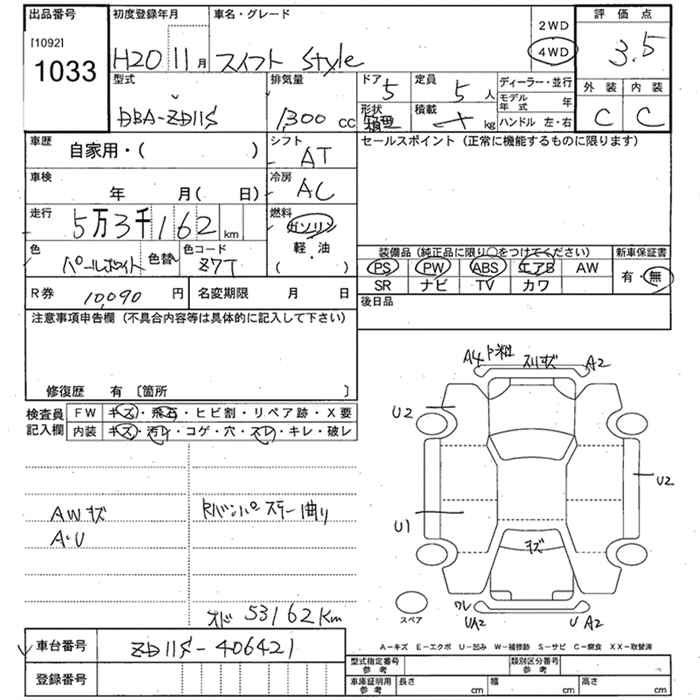 出品番号
[1092]
1033
初度登録年月
H20 11月
車名・グレード
スイフト Style
2WD
4WD
評価点
3.5
外装 内装
C C
型式
DBA-ZD11S
排気量
1,300 cc
ドア
5
定員
5人
形状
積載
kg
ディーラー・並行
モデル年式 年
ハンドル 左・右
車歴
自家用・( )
シフト
AT
セールスポイント (正常に機能するものに限ります)
車検
年 月( 日)
冷房
AC
走行
5万3千162km
燃料
ガソリン
軽・油
( ・ )
色
パールホワイト
色替
色コード
Z7T
装備品 (純正品に限り○をつけてください)
新車保証書
PS PW ABS エアB AW
SR ナビ TV カワ
有・無
R券 10,090円
名変期限 月 日
後日品
注意事項申告欄 (不具合内容等は具体的に記入して下さい)
修復歴 有 〔箇所 〕
検査員記入欄
FW キズ・飛石・ヒビ割・リペア跡・X要
内装 キズ・汚レ・コゲ・穴・スレ・キレ・破レ
AWキズ
A・U
Rバンパステー曲り
メド 53162km
A4
スリキズ
A2
U2
U2
U1
キズ
スペア
ワレ
UA2
U A2
車台番号 ZD11S-406421
登録番号
A-キズ E-エクボ U-凹み W-補修跡 S-サビ C-腐食 XX-取替済
型式指定番号 参考
類別区分番号 参考
車庫証明用 参考
長さ cm
幅 cm
高さ cm